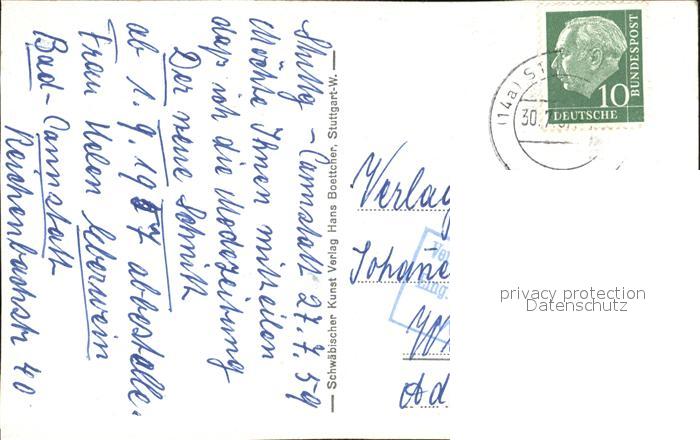 Stuttg - Cannstatt 27.7.59
Möchte Ihnen mitteilen
daß ich die Modezeitung
Der neue Schnitt
ab 1.9.1957 abbestelle.
Frau Helen Eberwein
Bad-Cannstatt
Reichenbachstr 40
Schwäbischer Kunst Verlag Hans Boettcher, Stuttgart-W.
BUNDESPOST
10
DEUTSCHE
(14a) ST
30.7.
Verlag
Johanne
Ad
privacy protection
Datenschutz